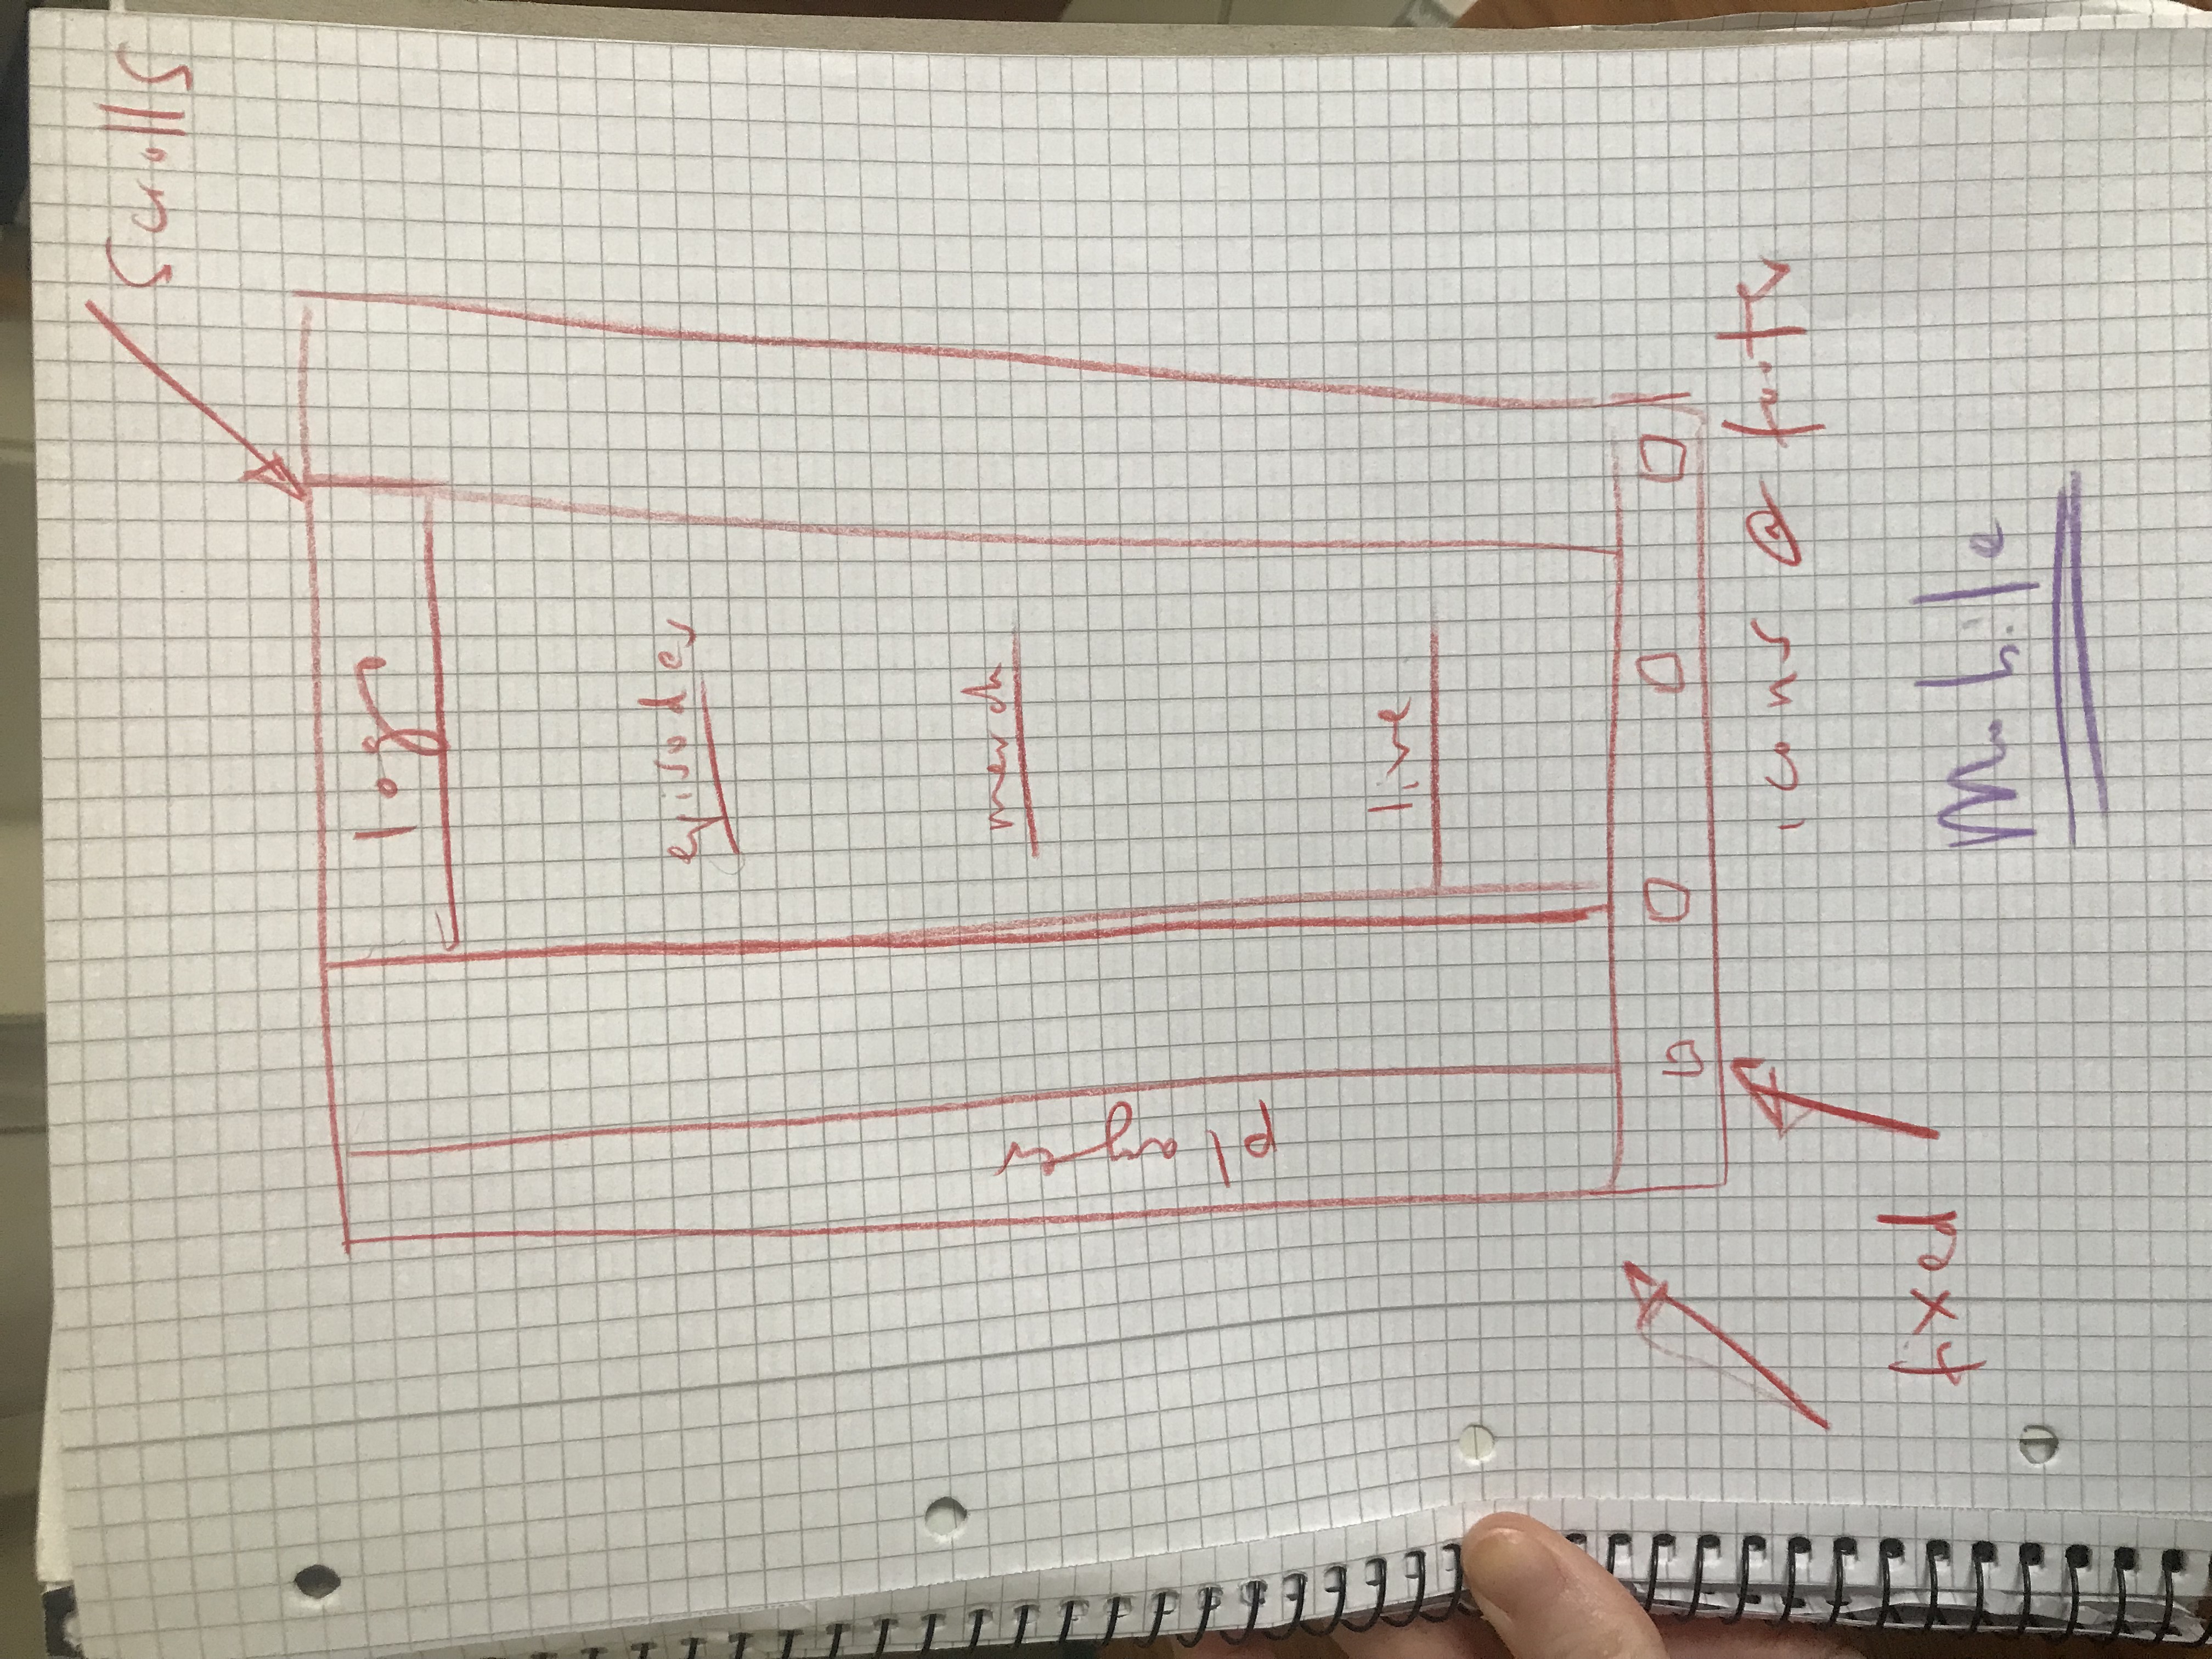 scrolls
logo
episodes
merch
player
live
icons @ footer
fixed
Mobile